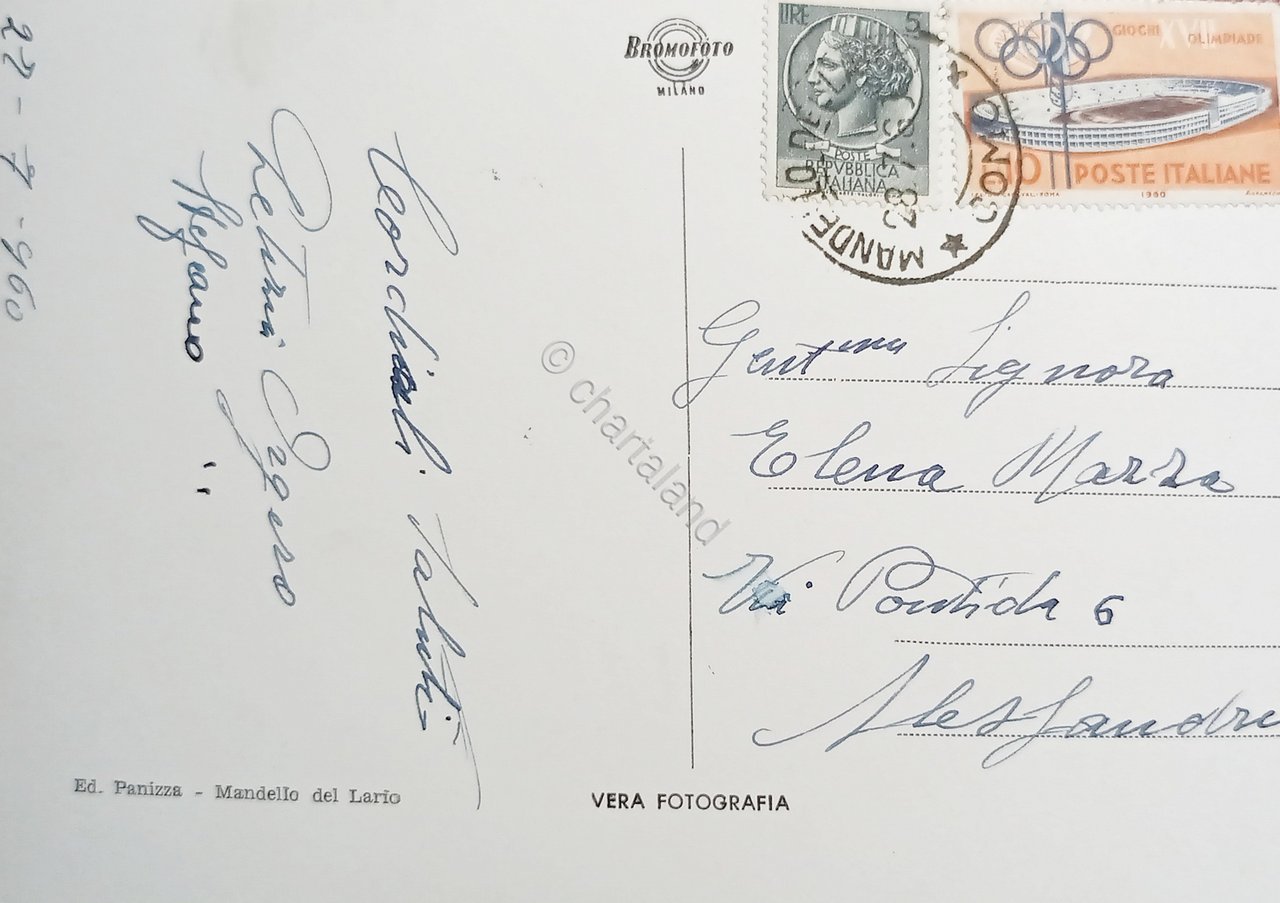 22-7-960
Cordiali saluti
Stefano
BROMOFOTO
MILANO
LIRE 5
POSTE
REPVBBLICA
ITALIANA
GIOCHI XVII OLIMPIADE
10 POSTE ITALIANE
1960
MANDELLO DEL
COMO
Gent.ma Signora
Elena Mazza
Via Pontida 6
Alessandri
© chartaland
Ed. Panizza - Mandello del Lario
VERA FOTOGRAFIA